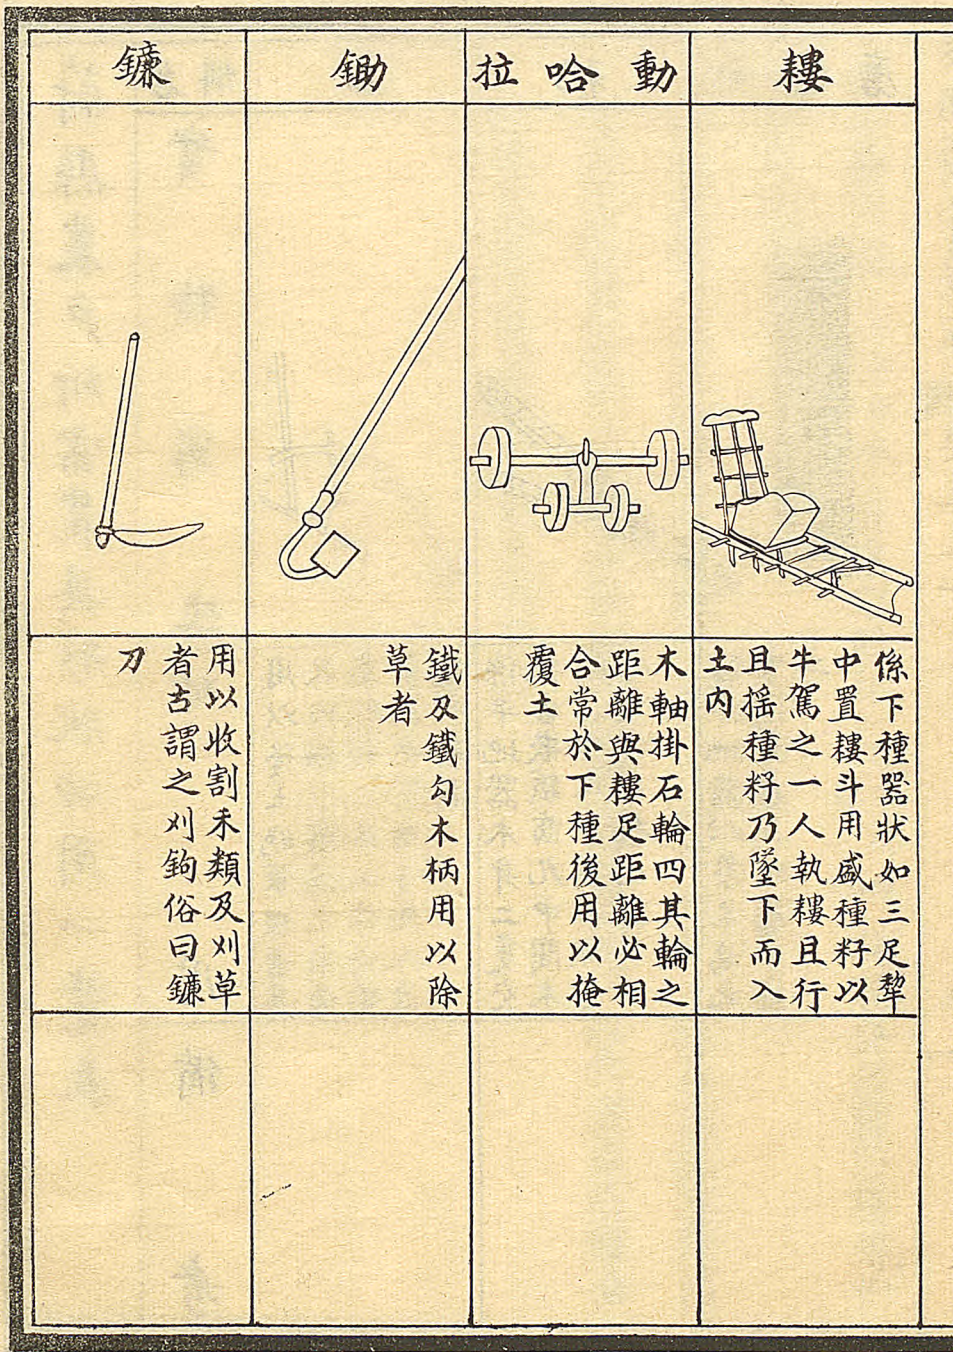 耬
係下種器狀如三足犂
中置耬斗用盛種籽以
牛駕之一人執耬且行
且搖種籽乃墜下而入
土內
動哈拉
木軸掛石輪四其輪之
距離與耬足距離必相
合常於下種後用以掩
覆土
鋤
鐵及鐵勾木柄用以除
草者
鐮
用以收割禾類及刈草
者古謂之刈鉤俗曰鐮
刀